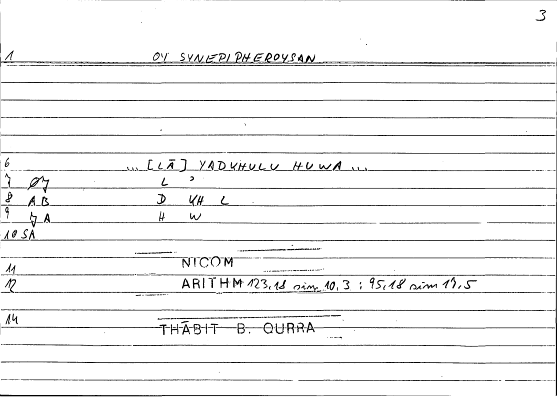 3
1 OY SYNEPIPHEROYSAN
6 ... [LĀ] YADKHULU HUWA ...
7 L ʾ
8 AB D KH L
9 A H W
10 SA
11 NICOM
12 ARITHM 123,18 sim 10,3 ; 95,18 sim 19,5
14 THĀBIT B. QURRA